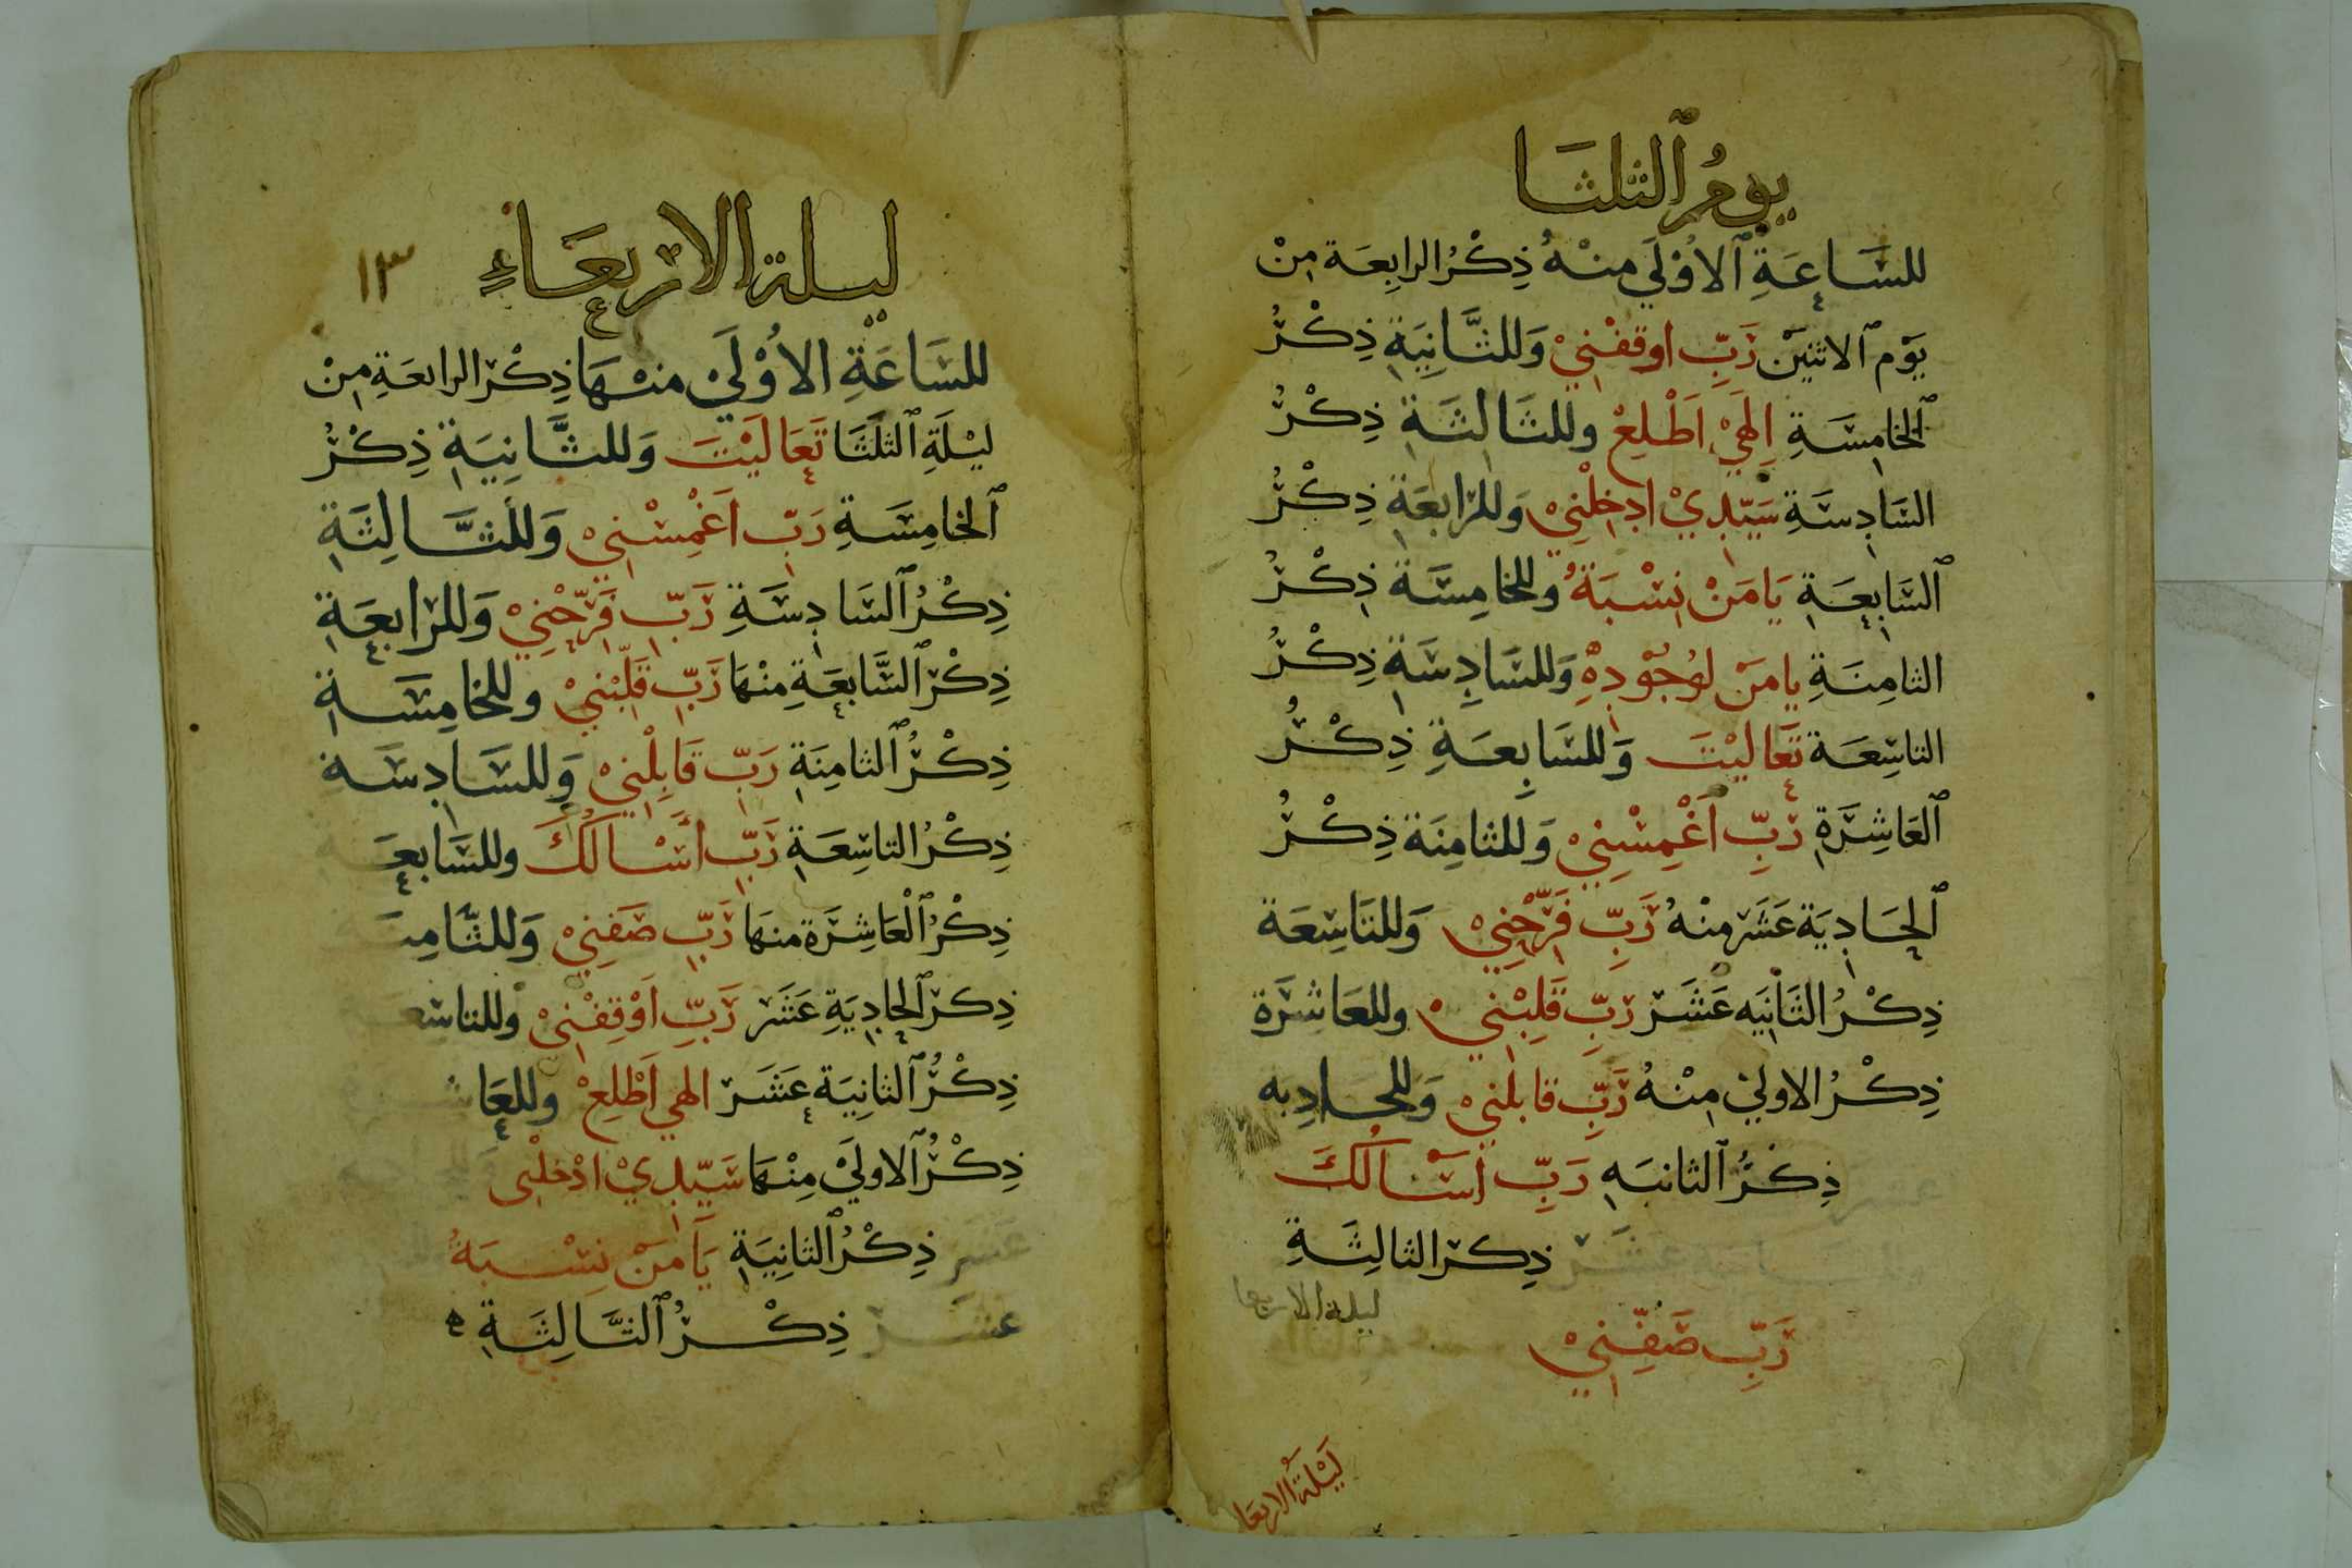 يومُ ٱلثلثَا
للسَاعَةِ ٱلاُوْلَي منهُ ذِكْرُ الرابِعَة مِنْ
يَوْم ٱلاثنَيْن رَبِّ اوقفْنِيْ وَللثَّانِيَةِ ذِكْرُ
ٱلخامِسَةِ اِلَهِيْ اَطْلِعْ وللثَالِثَةِ ذِكْرُ
السَادِسَةِ سَيّدِيْ ادخِلْنِيْ وَللرَابعَةِ ذِكْرُ
ٱلسَابِعَةِ يَا مَنْ نِسْبَةُ وللخامِسَة ذِكْرُ
الثامِنَةِ يا مَنْ لوُجُوْدِهِ وَللسَادِسَةِ ذِكْرُ
التاسِعَة تَعَاليْتَ وَللسَابِعَةِ ذِكْرُ
ٱلعَاشِرَةِ رَبِّ اَغْمِسْنِيْ وَللثامِنَة ذِكْرُ
ٱلحَادِيَة عَشَر منْهُ رَبِّ فَرِّحْنِيْ وَللتَاسِعَة
ذِكْرُ الثَانِيَه عَشَر رَبِّ قَلِبْنِيْ وللعَاشِرَة
ذِكْرُ الاوليْ مِنْهُ رَبِّ قابلنيْ وَللحادِيه
عشر ذِكْرُ ٱلثانيَه رَبِّ أسْالُكَ
عَشَرَ ذِكرُ الثالِثَةِ
رَبِّ صَفِّنِيْ
ليلة الاربعا
لَيْلَةُ الاربَعَا
ليلة الاربعَاءِ
١٣
للسَاعَةِ الاُوْلَيْ منهَا ذِكْرُ الرابعَةِ مِنْ
ليْلَةِ ٱلثلَثَا تَعَالَيْتَ وَللثَّانِيَةِ ذِكْرُ
ٱلخامِسَةِ رَبِّ اَغْمِسْنِيْ وَللثَّالِثَةِ
ذِكْرُ ٱلسَادِسَةِ رَبِّ فَرِّحْنِيْ وَللرَابِعَةِ
ذِكْرُ ٱلسَّابِعَةِ مِنْهَا رَبِّ قَلِّبْنِيْ وللخامِسَةِ
ذِكْرُ ٱلثامِنَةِ رَبِّ قَابِلْنِيْ وَللسَادِسَة
ذِكْرُ التاسِعَةِ رَبِّ أسْالُكَ وللسَابعَة
ذِكْرُ ٱلْعَاشِرَة منهَا رَبِّ صَفنِيْ وَللثَّامِنَة
ذِكرُ ٱلحادِيَةِ عَشَر رَبِّ اَوْقِفْنِيْ وللتاسِعَة
ذِكْرُ ٱلثانِيَة عَشَر الهي اَطْلِعْ وللعَاشرة
ذِكْرُ ٱلاوليْ مِنْهَا سَيّدِيْ ادْخلْنِى
عَشَر ذِكْرُ ٱلثانِيَةِ يَا مَنْ نِسْبَةُ
عشَر ذِكْرُ ٱلثَالِثَةِ